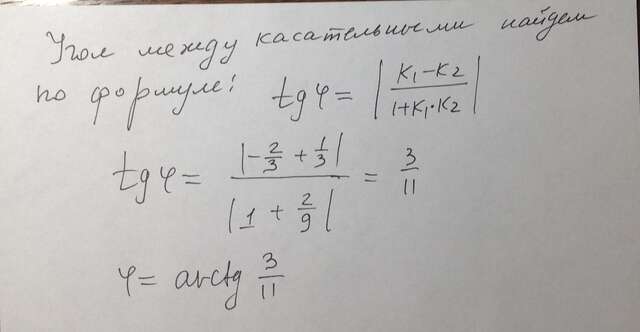 Угол между касательными найдем
по формуле: tgφ = |(K₁-K₂)/(1+K₁·K₂)|
tgφ = |-2/3 + 1/3| / |1 + 2/9| = 3/11
φ = arctg 3/11